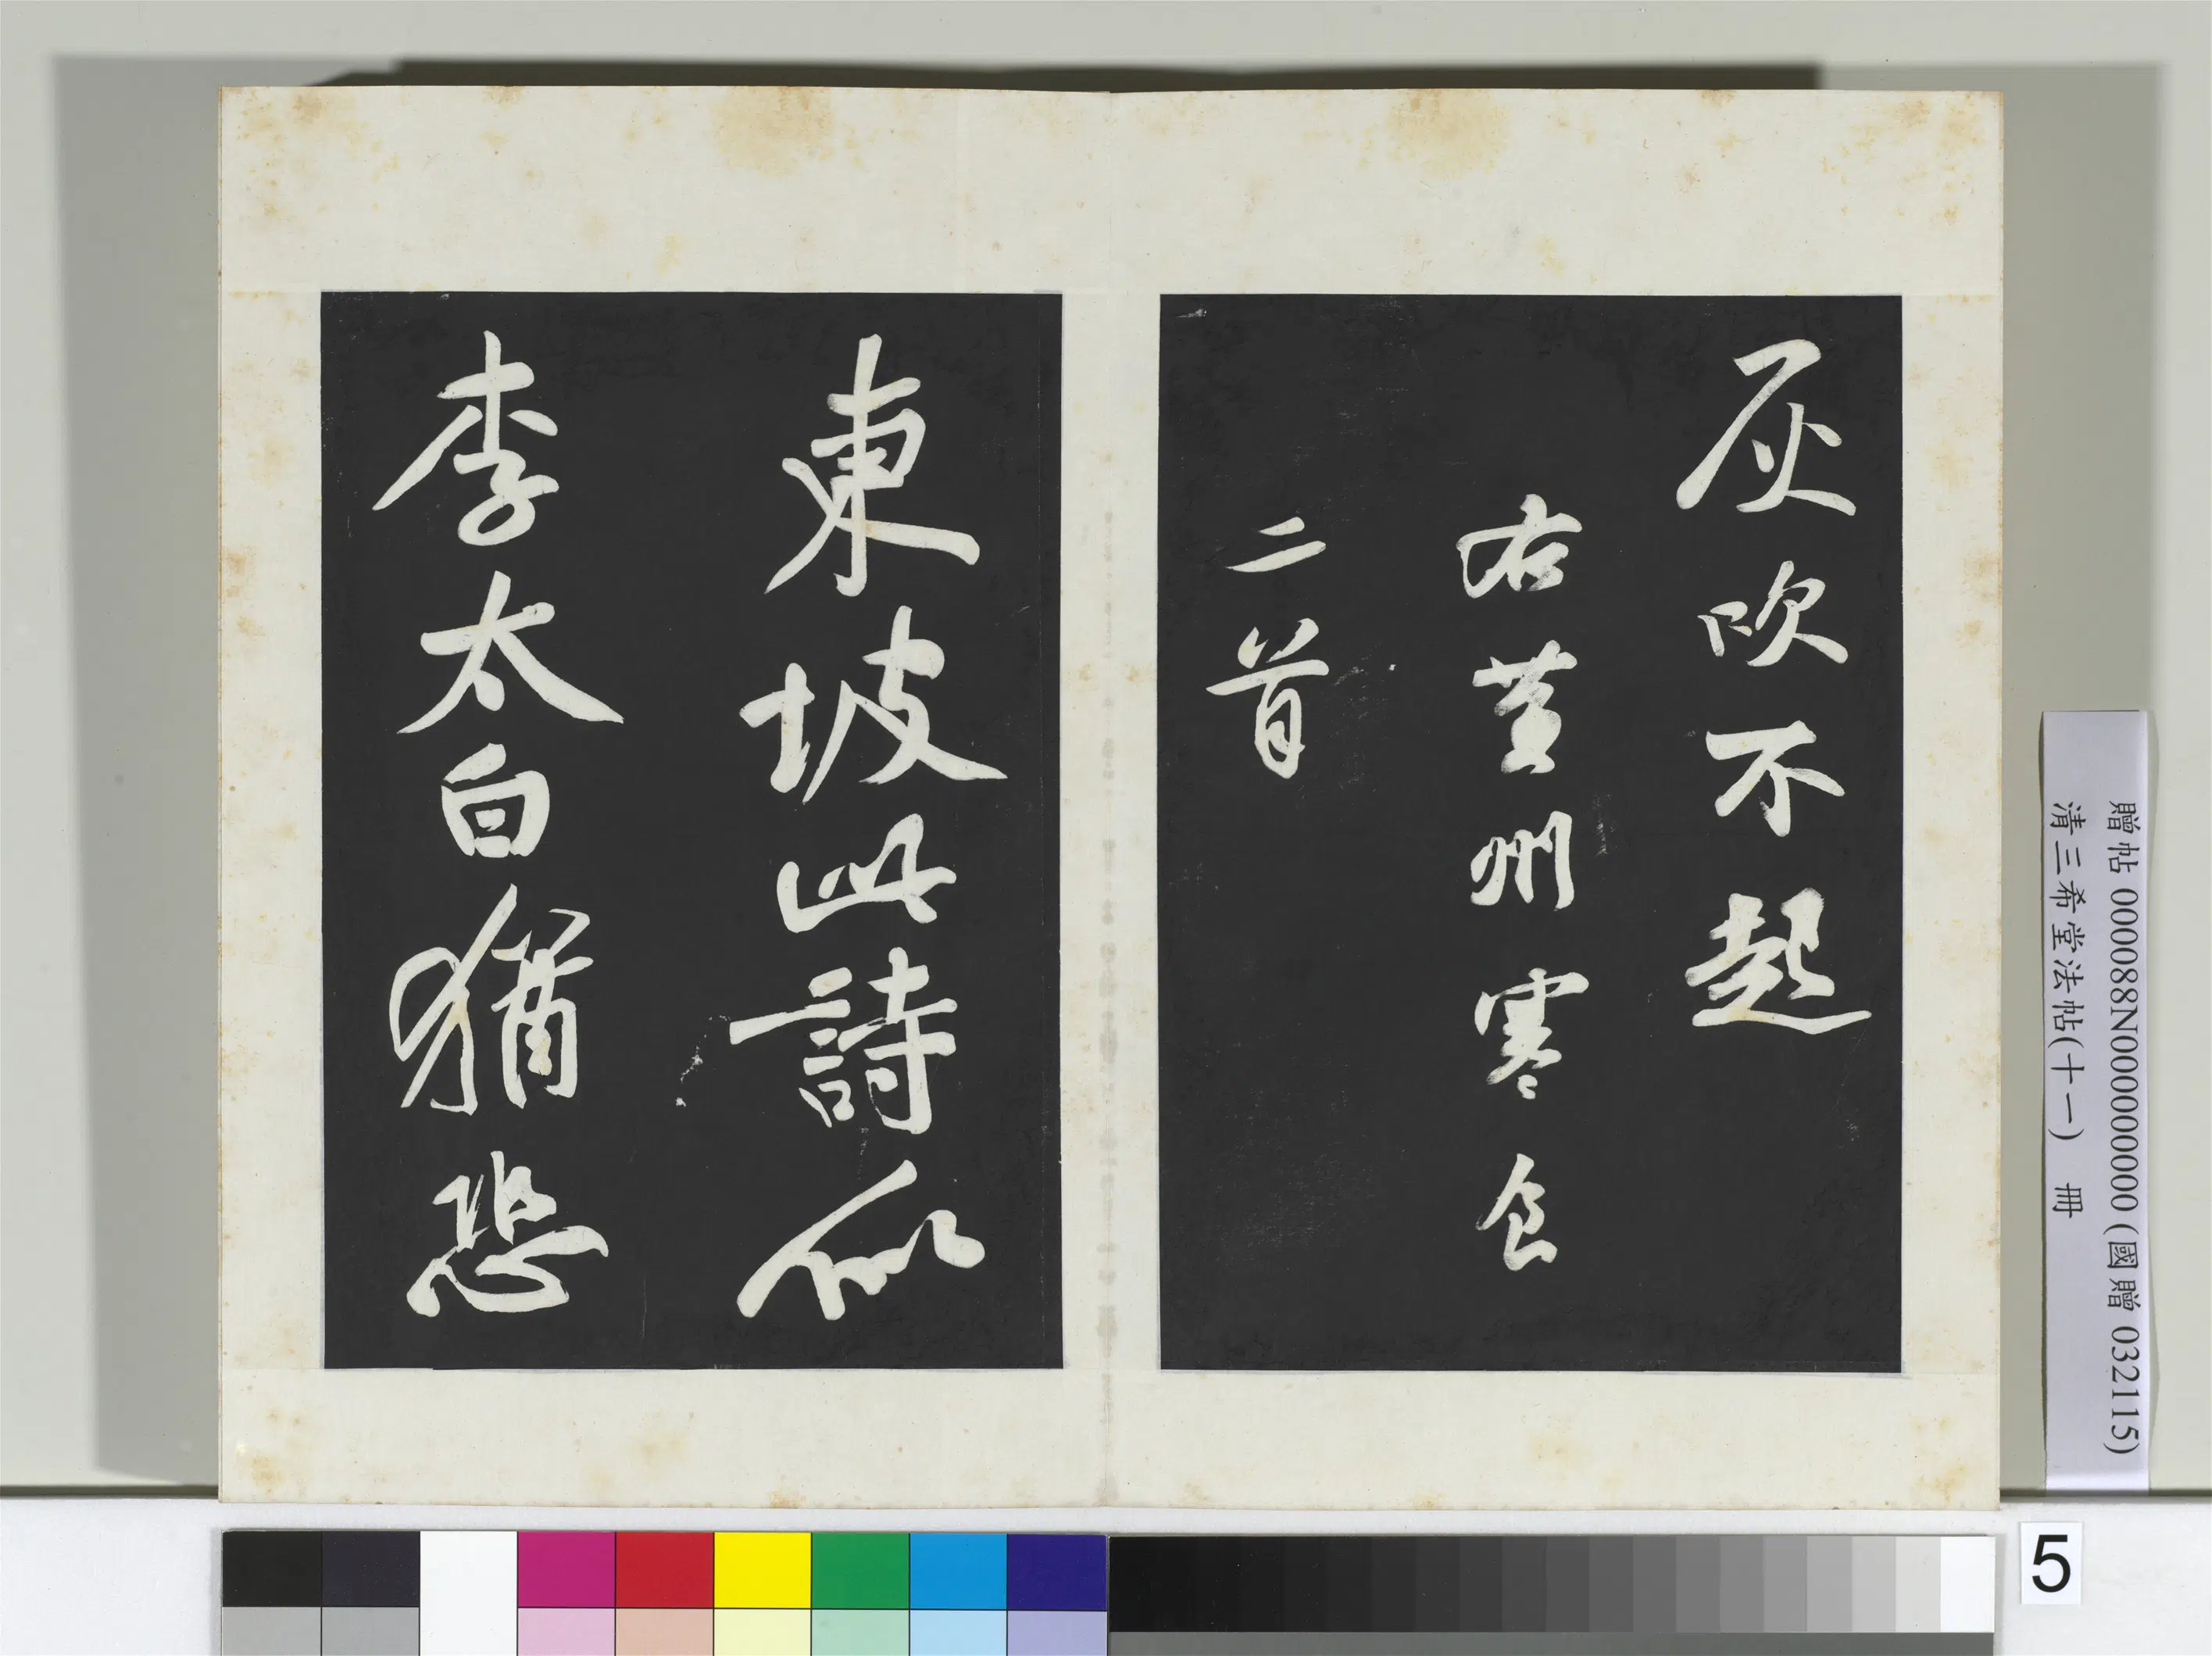 灰吹不起
右黄州寒食
二首
東坡此詩似
李太白猶恐
贈帖 000088N000000000 (國贈 032115)
清三希堂法帖(十一) 冊
5